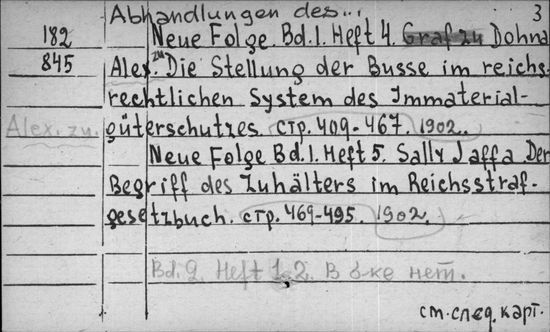 Abhandlungen des... 3
182 Neue Folge. Bd. 1. Heft 4. Graf zu Dohna
845 Alex. zu Die Stellung der Busse im reichs-
rechtlichen System des Immaterial-
Alex. zu. güterschutzes. стр. 409-467. 1902.
Neue Folge Bd. 1. Heft 5. Sally Jaffa Der
Begriff des Zuhälters im Reichsstraf-
gesetzbuch. стр. 469-495. 1902.
Bd. 2. Heft 1, 2. В б-ке нет.
см. след. карт.